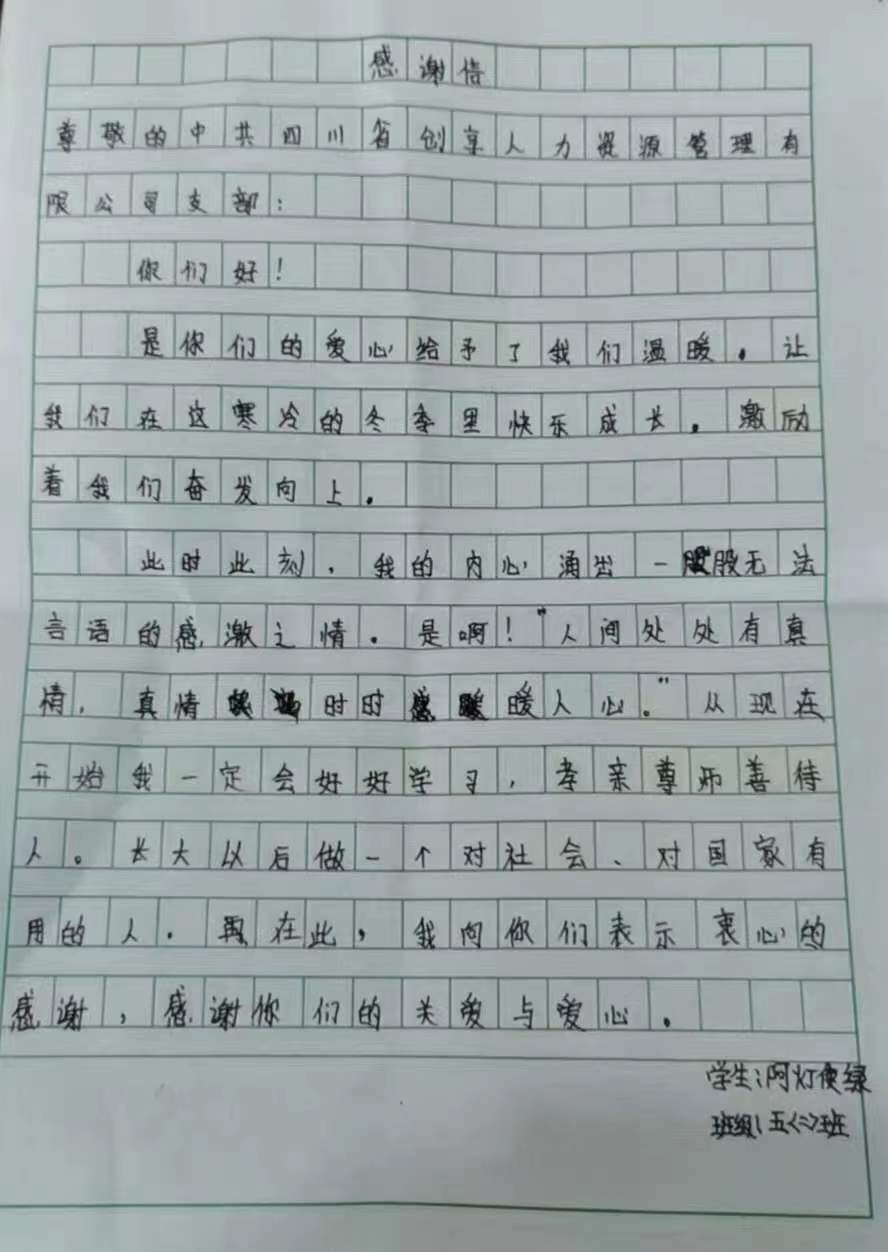 感谢信
尊敬的中共四川省创享人力资源管理有
限公司支部：
你们好！
是你们的爱心给予了我们温暖。让
我们在这寒冷的冬季里快乐成长。激励
着我们奋发向上。
此时此刻，我的内心涌出一股股无法
言语的感激之情。是啊！“人间处处有真
情，真情时时暖人心。”从现在
开始我一定会好好学习，孝亲尊师善待
人。长大以后做一个对社会、对国家有
用的人。再在此，我向你们表示衷心的
感谢，感谢你们的关爱与爱心。
学生：阿灯使绿
班级：五<二>班